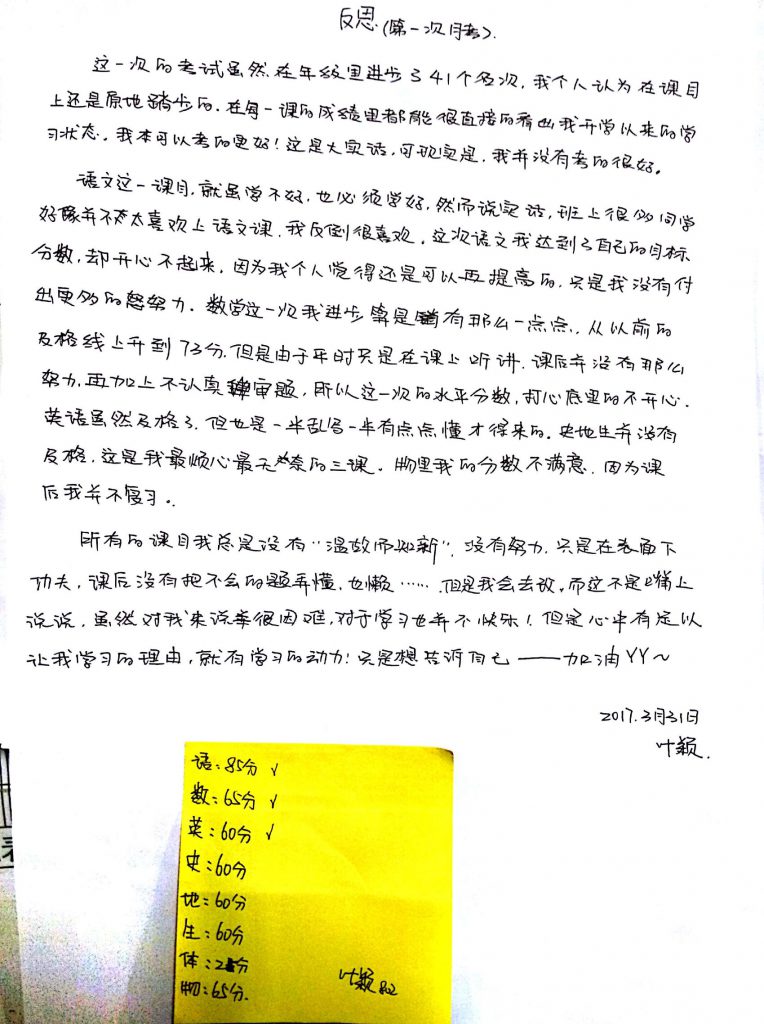 反思(第一次月考).
这一次的考试虽然在年级里进步了41个名次,我个人认为在课目
上还是原地踏步的.在每一课的成绩里都能很直接的看出我开学以来的学
习状态.我本可以考的更好!这是大实话,可现实是,我并没有考的很好。
语文这一课目,就虽学不好,也必须学好,然而说实话,班上很多同学
好像并不太喜欢上语文课,我反倒很喜欢。这次语文我达到了自己的目标
分数,却开心不起来,因为我个人觉得还是可以再提高的,只是我没有付
出更多的努力.数学这一次我进步算是有那么一点点.,从以前的
及格线上升到73分.但是由于平时只是在课上听讲.课后并没有那么
努力,再加上不认真审题,所以这一次的水平分数,打心底里的不开心.
英语虽然及格了,但也是一半乱写一半有点点懂才得来的。史地生并没有
及格,这是我最烦心最无奈的三课。物理我的分数不满意.因为课
后我并不复习。
所有的课目我总是没有"温故而知新",没有努力.只是在表面下
功夫,课后没有把不会的题弄懂,也懒……但是我会去改,而这不是嘴上
说说,虽然对我来说牵很困难,对于学习也并不快乐!但是心中有足以
让我学习的理由,就有学习的动力!只是想告诉自己——加油YY~
2017.3月31日
叶颖.
语:85分 √
数:65分 √
英:60分 √
史:60分
地:60分
生:60分
体:分
物:65分.
叶颖